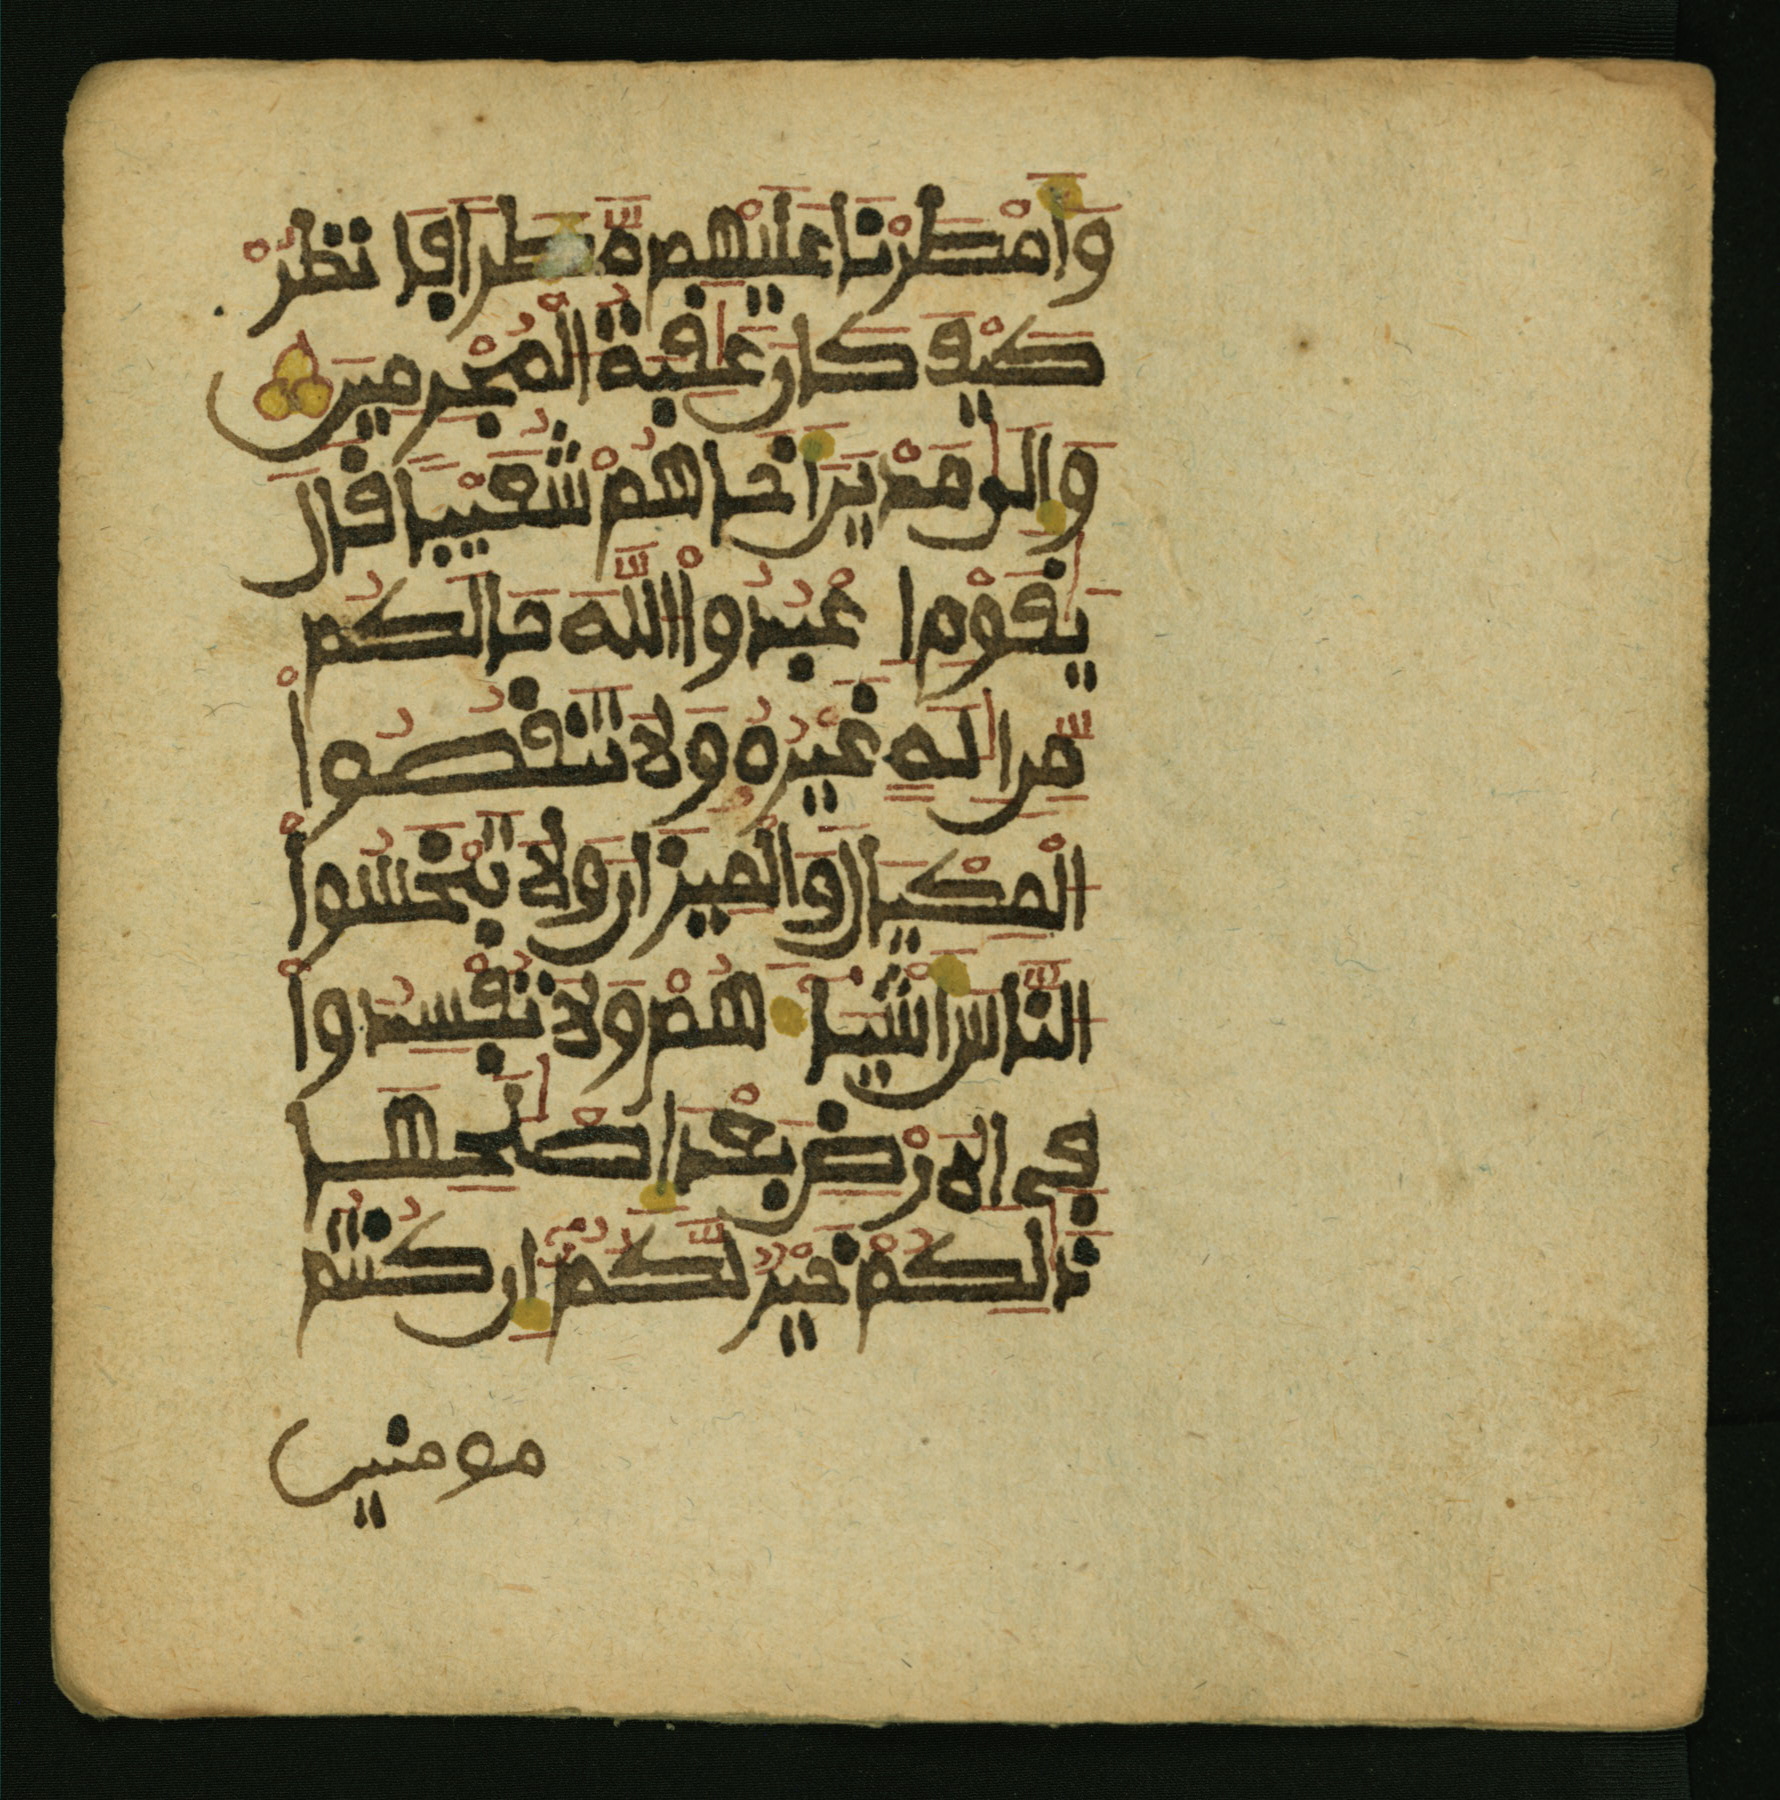 وَأَمْطَرْنَا عَلَيْهِم مَّطَرًا فَانظُرْ
كَيْفَ كَانَ عَٰقِبَةُ الْمُجْرِمِينَ
وَإِلَىٰ مَدْيَنَ أَخَاهُمْ شُعَيْبًا قَالَ
يَٰقَوْمِ اعْبُدُواْ اللَّهَ مَا لَكُم
مِّنْ إِلَٰهٍ غَيْرُهُ وَلَا تَنقُصُواْ
الْمِكْيَالَ وَالْمِيزَانَ وَلَا تَبْخَسُواْ
النَّاسَ أَشْيَاءَهُمْ وَلَا تُفْسِدُواْ
فِي الْأَرْضِ بَعْدَ إِصْلَٰحِهَا
ذَٰلِكُمْ خَيْرٌ لَّكُمْ إِن كُنتُم
مومنين